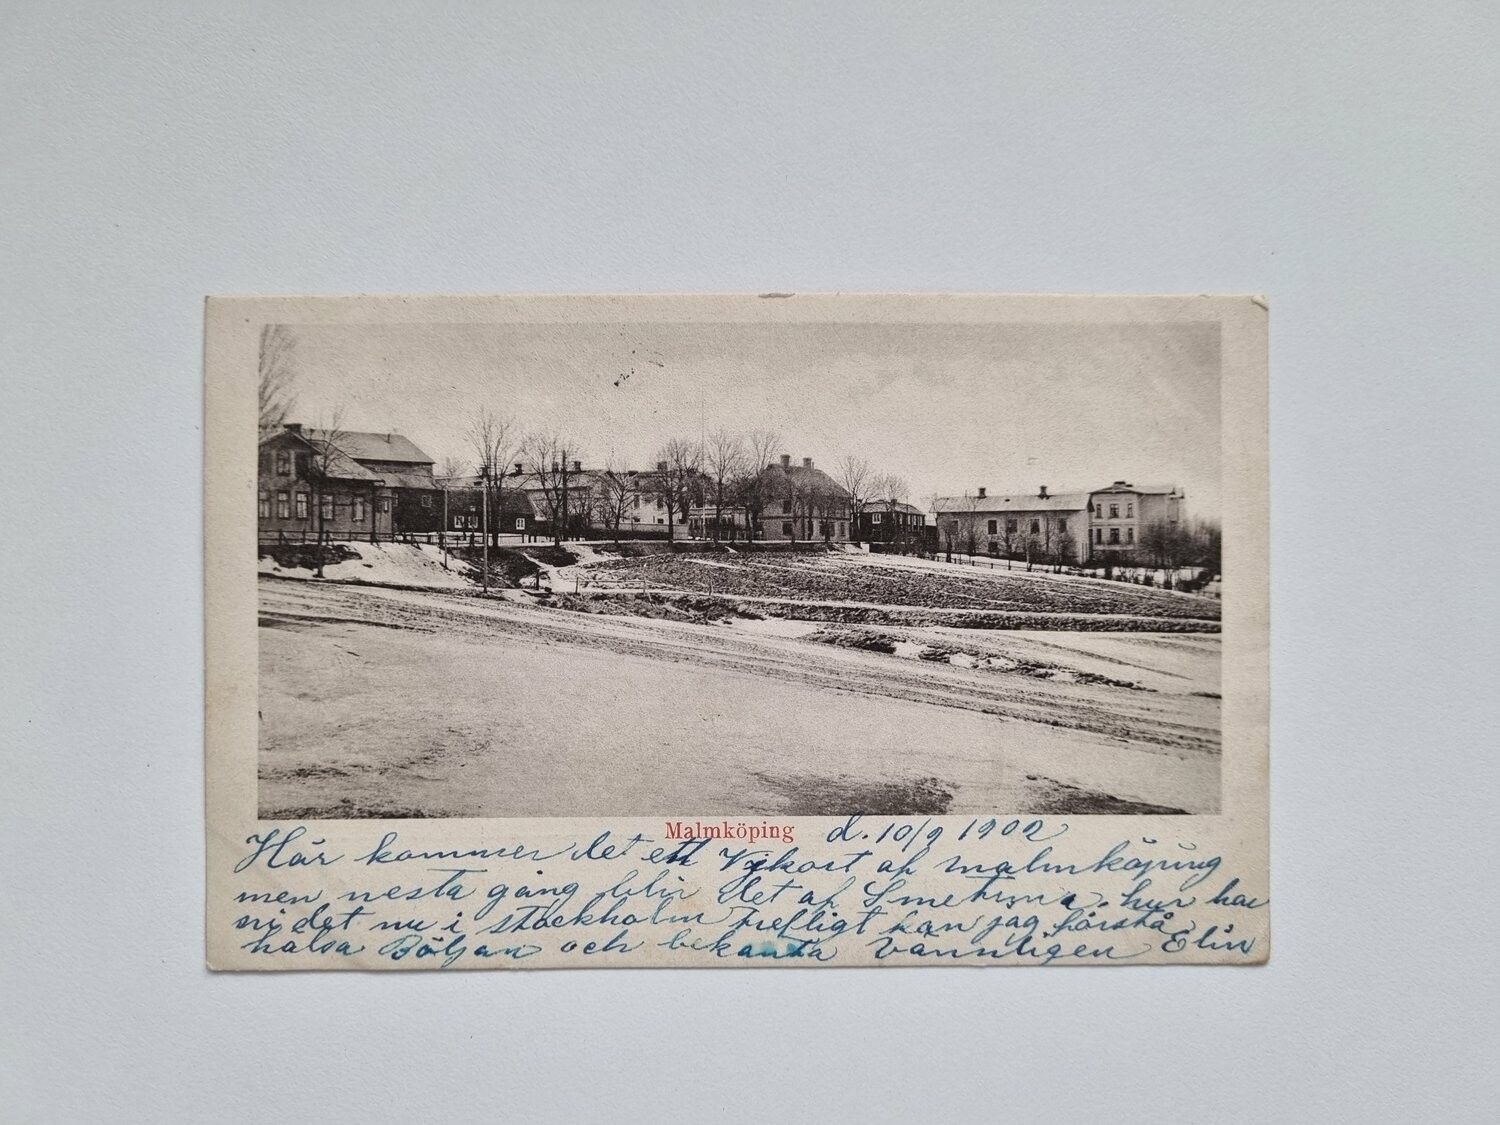 Malmköping d. 10/9 1902
Här kommer det ett Vykort af malmköping
men nesta gång blir det af hur har
ni det nu i stockholm trefligt kan jag förstå
halsa Böljan och bekanta Vännligen Elin